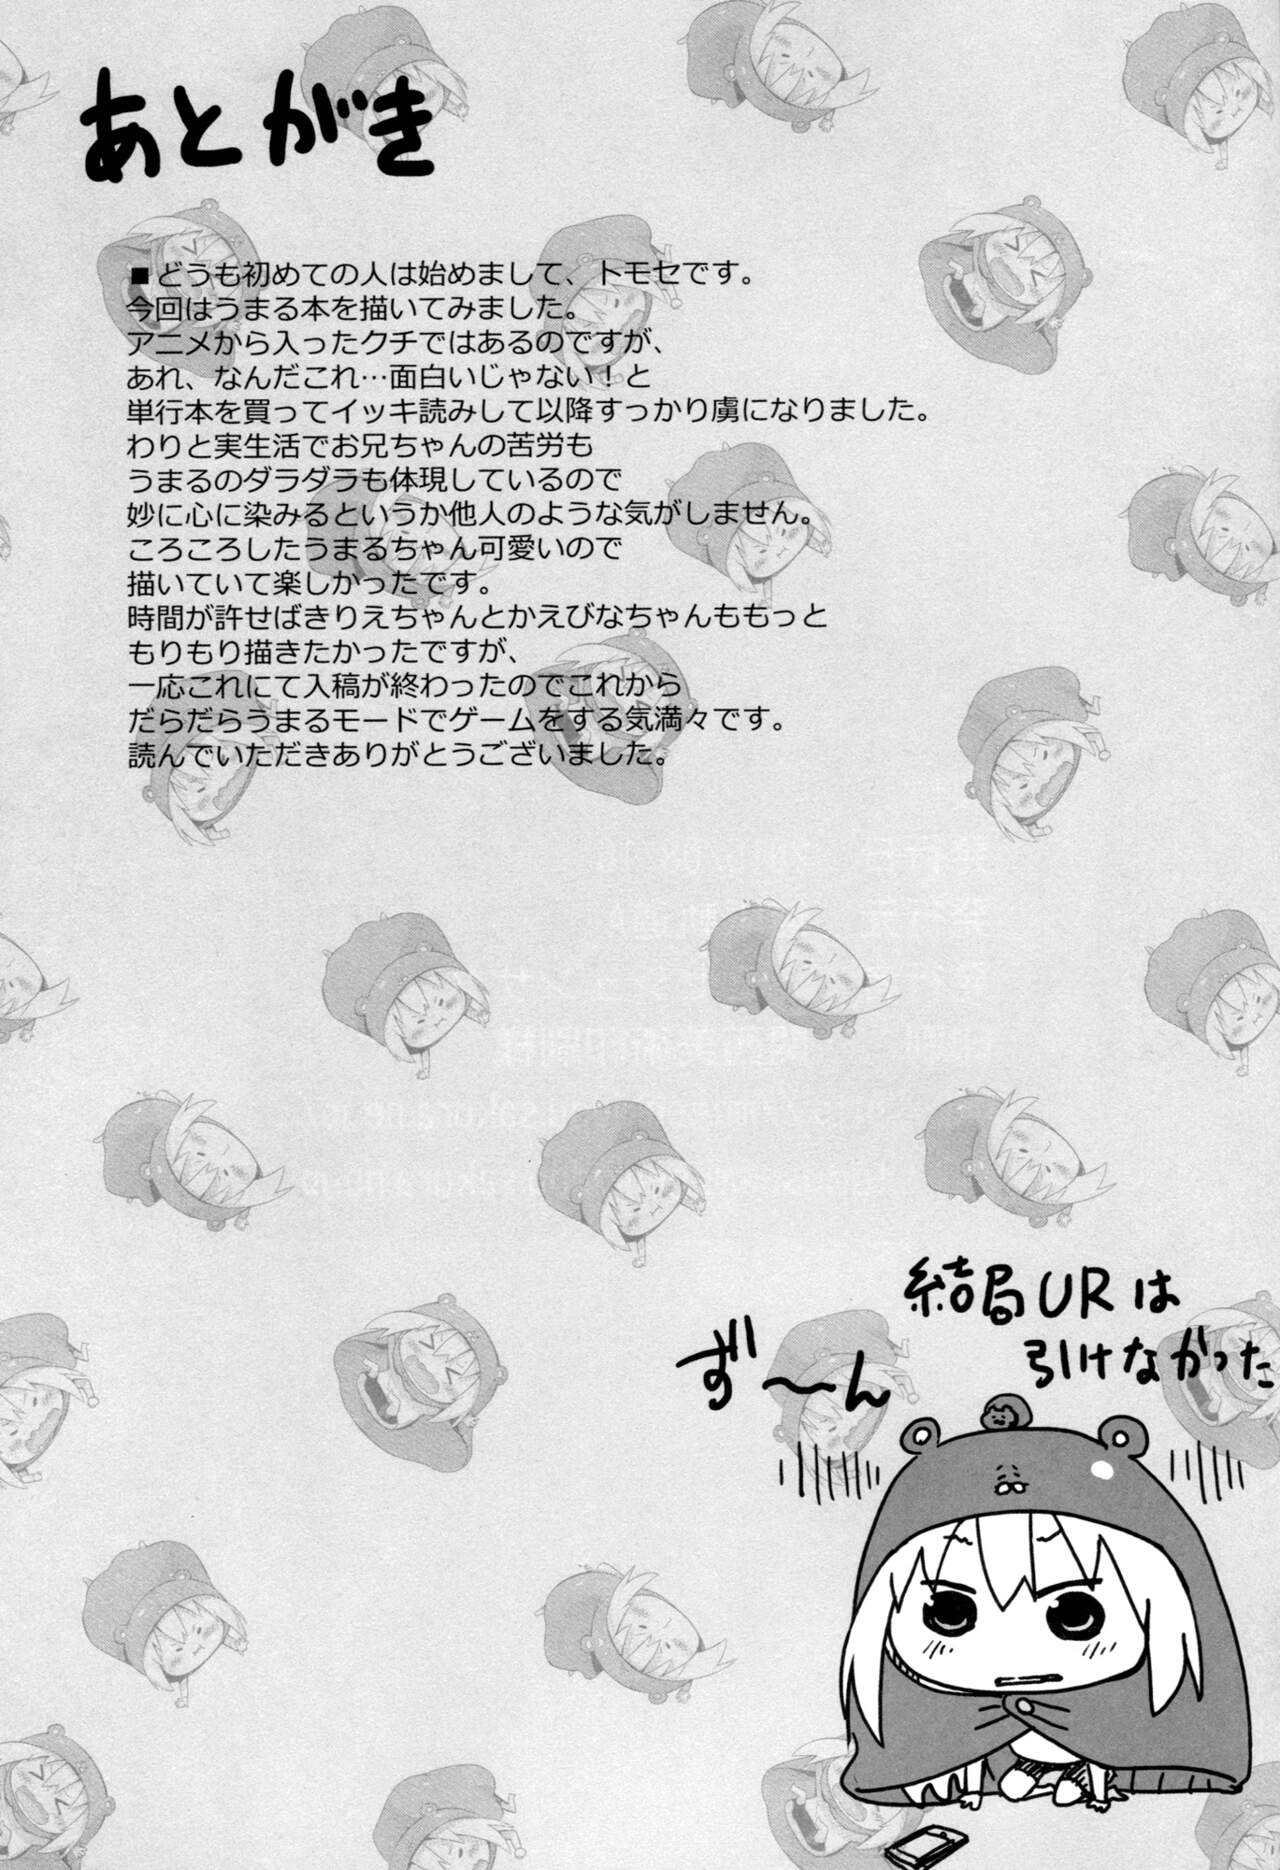 あとがき
■どうも初めての人は始めまして、トモセです。
今回はうまる本を描いてみました。
アニメから入ったクチではあるのですが、
あれ、なんだこれ…面白いじゃない！と
単行本を買ってイッキ読みして以降すっかり虜になりました。
わりと実生活でお兄ちゃんの苦労も
うまるのダラダラも体現しているので
妙に心に染みるというか他人のような気がしません。
ころころしたうまるちゃん可愛いので
描いていて楽しかったです。
時間が許せばきりえちゃんとかえびなちゃんももっと
もりもり描きたかったですが、
一応これにて入稿が終わったのでこれから
だらだらうまるモードでゲームをする気満々です。
読んでいただきありがとうございました。
結局URは
引けなかった
ず〜〜ん